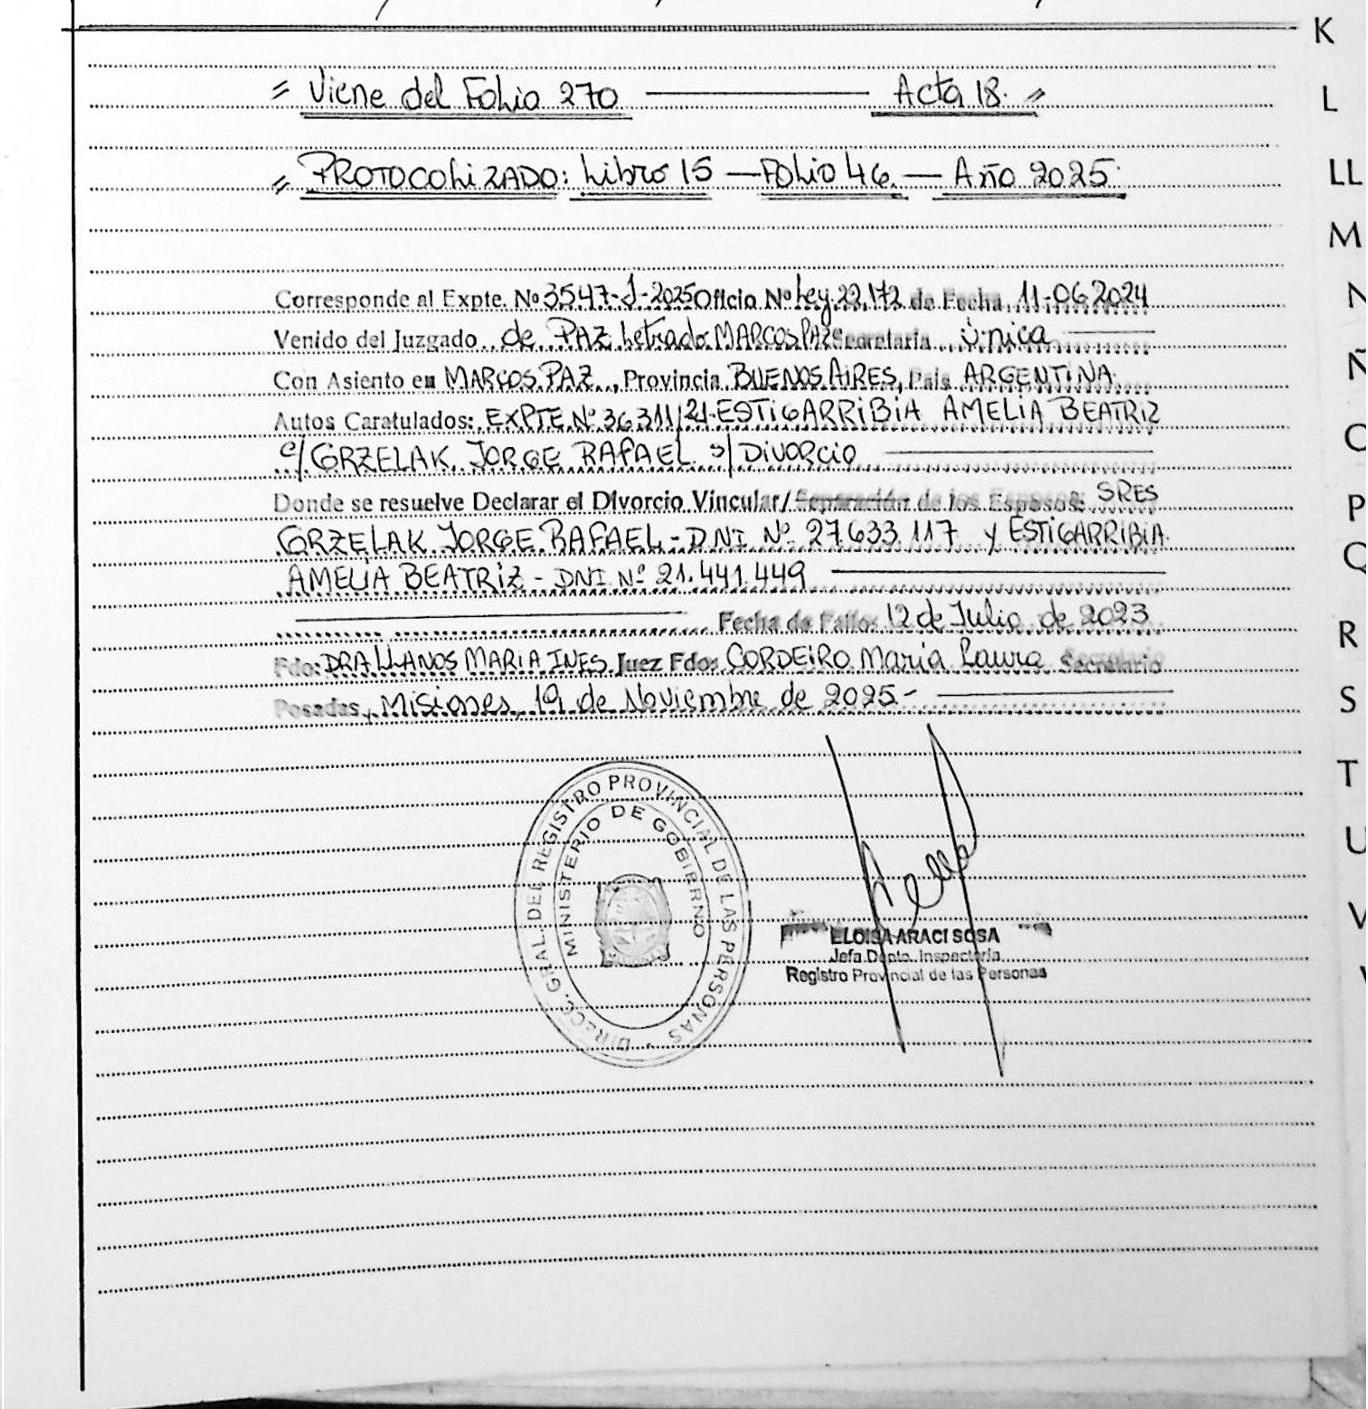 〃 Viene del Folio 270 ——— Acta 18. 〃
〃 PROTOCOLIZADO: Libro 15 — Folio 46. — Año 2025.
Corresponde al Expte. Nº 3547-J-2025 Oficio Nº Ley 22.172 de Fecha 11-06 2024
Venido del Juzgado de PAZ Letrado MARCOS PAZ Secretaria Única
Con Asiento en MARCOS PAZ, Provincia BUENOS AIRES, País ARGENTINA.
Autos Caratulados: EXPTE Nº 36311/21. ESTIGARRIBIA AMELIA BEATRIZ
c/ GRZELAK JORGE RAFAEL s/ DIVORCIO
Donde se resuelve Declarar el Divorcio Vincular/Separación de los Esposos: SRES
GRZELAK JORGE RAFAEL - DNI Nº 27.633.117 y ESTIGARRIBIA
AMELIA BEATRIZ - DNI Nº 21.441.449
Fecha de Fallo: 12 de Julio de 2023
Fdo: DRA LLANOS MARIA INES. Juez Fdo: CORDEIRO Maria Laura Secretario
Posadas, Misiones, 19 de Noviembre de 2025-
DIRECC. GRAL. DEL REGISTRO PROVINCIAL DE LAS PERSONAS
MINISTERIO DE GOBIERNO
ELOISA ARACI SOSA
Jefa Dpto. Inspectoría
Registro Provincial de las Personas
K
L
LL
M
N
Ñ
O
P
Q
R
S
T
U
V